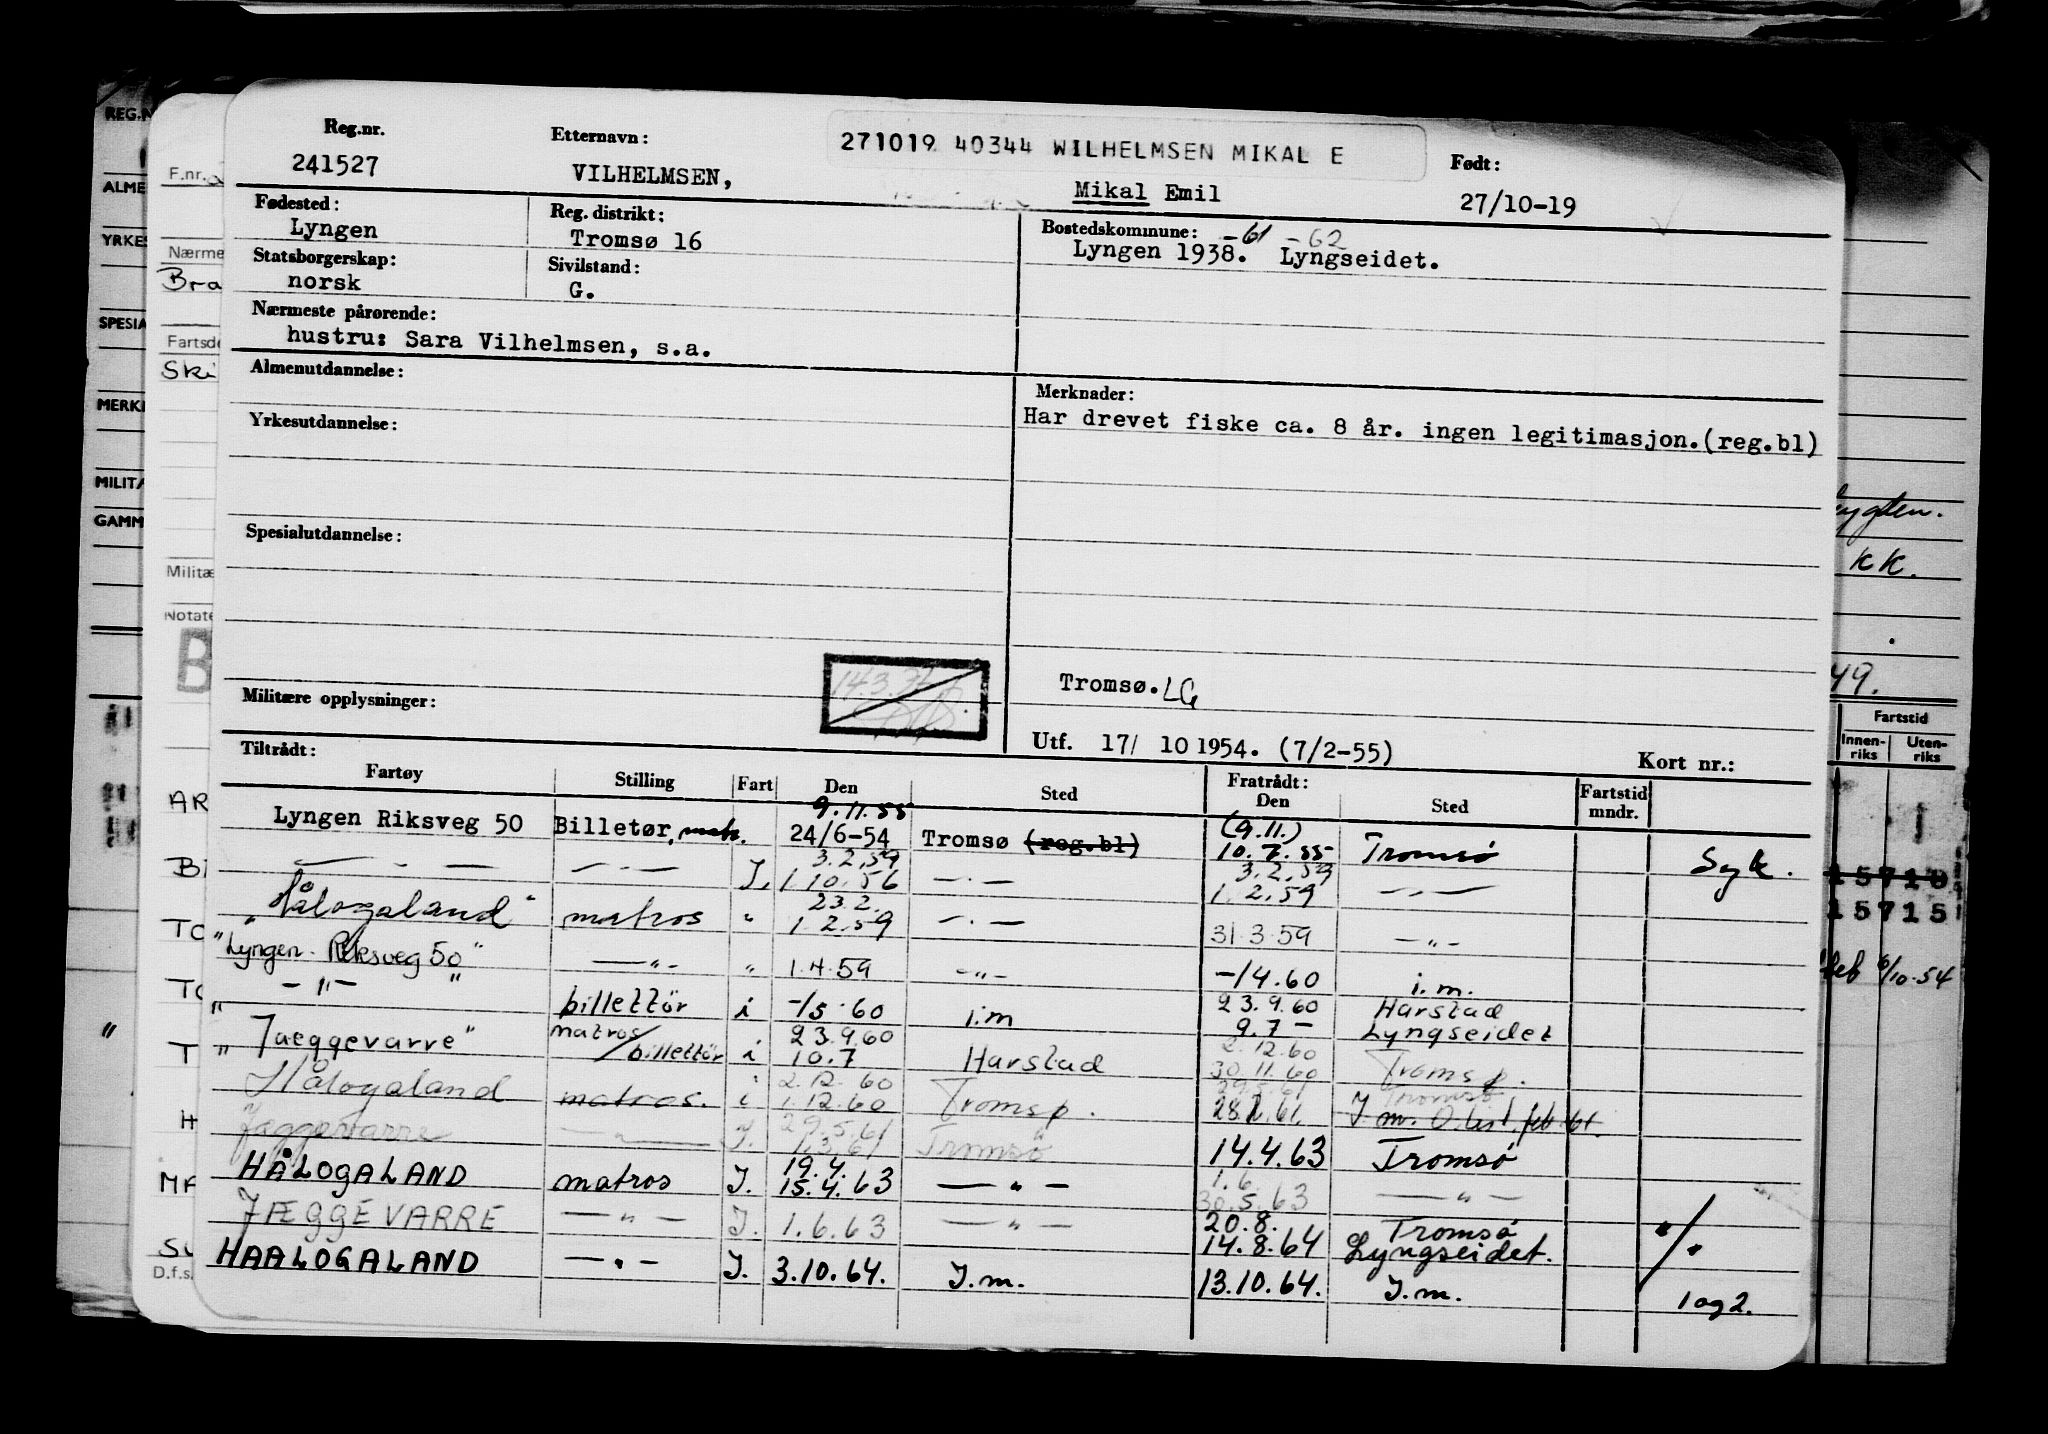 Reg.nr. Etternavn: 271019 40344 WILHELMSEN MIKAL E Født:
241527 VILHELMSEN, Mikal Emil 27/10-19
Fødested: Reg. distrikt: Bostedskommune: -61 -62
Lyngen Tromsø 16 Lyngen 1938. Lyngseidet.
Statsborgerskap: Sivilstand:
norsk G.
Nærmeste pårørende:
hustru: Sara Vilhelmsen, s.a.
Almenutdannelse: Merknader:
Har drevet fiske ca. 8 år. ingen legitimasjon.(reg.bl)
Yrkesutdannelse:
Spesialutdannelse:
Tromsø. LG
Militære opplysninger:
Utf. 17/ 10 1954. (7/2-55) Kort nr.:
Tiltrådt: Fratrådt:
Fartøy Stilling Fart Den Sted Den Sted Fartstid mndr.
9.11.55 (9.11.)
Lyngen Riksveg 50 Billetør, matr. 24/6-54 Tromsø (reg.bl) 10.7.55 Tromsø Syk.
3.2.59 3.2.59
— " — — " — I. 1.10.56 — " — 1.2.59 — " —
23.2.
"Hålogaland" matros " 1.2.59 — " — 31.3.59 — " —
"Lyngen Riksveg 50" — " — " 1.4.59 — " — -/4.60 i.m.
" — " — " billettør i -/5.60 i.m 23.9.60 Harstad
9.7 — Lyngseidet
"Jaeggevarre" matros/billettör i 23.9.60
10.7 Harstad 2.12.60
30.11.60 Tromsø.
Hålogaland matros. i 2.12.60
1.12.60 Tromsø. 29.5.61 Tromsø
28.2.61. I.m. O.list. feb 61.
Jæggevarre — " — I. 29.5.61
1.3.61 Tromsø 14.4.63 Tromsø
HÅLOGALAND matros I. 19.4.
15.4.63 — " — 1.6.
30.5.63 — " —
JÆGGEVARRE — " — I. 1.6.63 — " — 20.8. Tromsø
14.8.64 Lyngseidet. "/"
HAALOGALAND — " — I. 3.10.64. I.m. 13.10.64. I.m. 1 og 2.
REG.N
ALME
YRKES
SPESIA
MERK
MILITÆ
GAMM
F.nr.
Nærme
Bra
Fartsde
Ski
Militæ
Notate
B
AR
TO
TO
T
H
MA
D.f.s.
KK.
49.
Fartstid
Innen-riks Uten-riks
15710
15715
feb 6/10-54